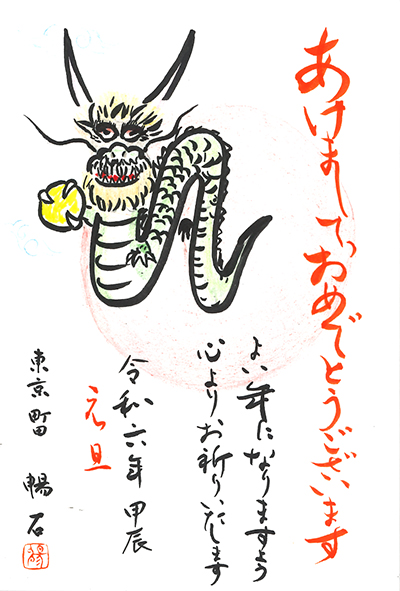 あけましておめでとうございます
よい年になりますよう
心よりお祈りいたします
令和六年 甲辰
元旦
東京 町田 暢石